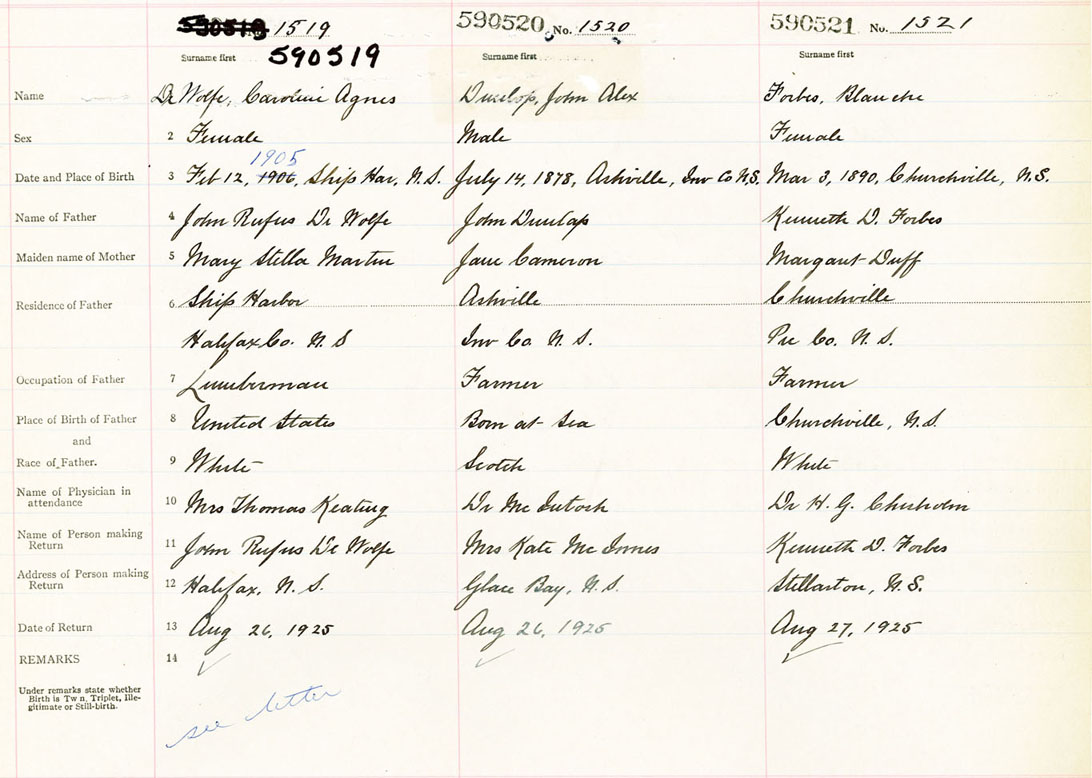 1519 590520 No. 1520 590521 No. 1521
Surname first 590519 Surname first Surname first
Name De Wolfe, Caroline Agnes Dunlop, John Alex Forbes, Blanche
Sex 2 Female Male Female
1905
Date and Place of Birth 3 Feb 12, 1906, Ship Har, N.S. July 14, 1878, Ashville, Inv Co N.S. Mar 3, 1890, Churchville, N.S.
Name of Father 4 John Rufus De Wolfe John Dunlap Kenneth D. Forbes
Maiden name of Mother 5 Mary Stella Martin Jane Cameron Margaret Duff
Residence of Father 6 Ship Harbor Ashville Churchville
Halifax Co. N.S Inv Co. N.S. Pic Co. N.S.
Occupation of Father 7 Lumberman Farmer Farmer
Place of Birth of Father 8 United States Born at Sea Churchville, N.S.
and
Race of Father. 9 White Scotch White
Name of Physician in
attendance 10 Mrs Thomas Keating Dr McIntosh Dr H. G. Chisholm
Name of Person making
Return 11 John Rufus De Wolfe Mrs Kate McInnes Kenneth D. Forbes
Address of Person making
Return 12 Halifax, N.S. Glace Bay, N.S. Stellarton, N.S.
Date of Return 13 Aug 26, 1925 Aug 26, 1925 Aug 27, 1925
REMARKS 14
Under remarks state whether
Birth is Tw n, Triplet, Ille-
gitimate or Still-birth.
see letter